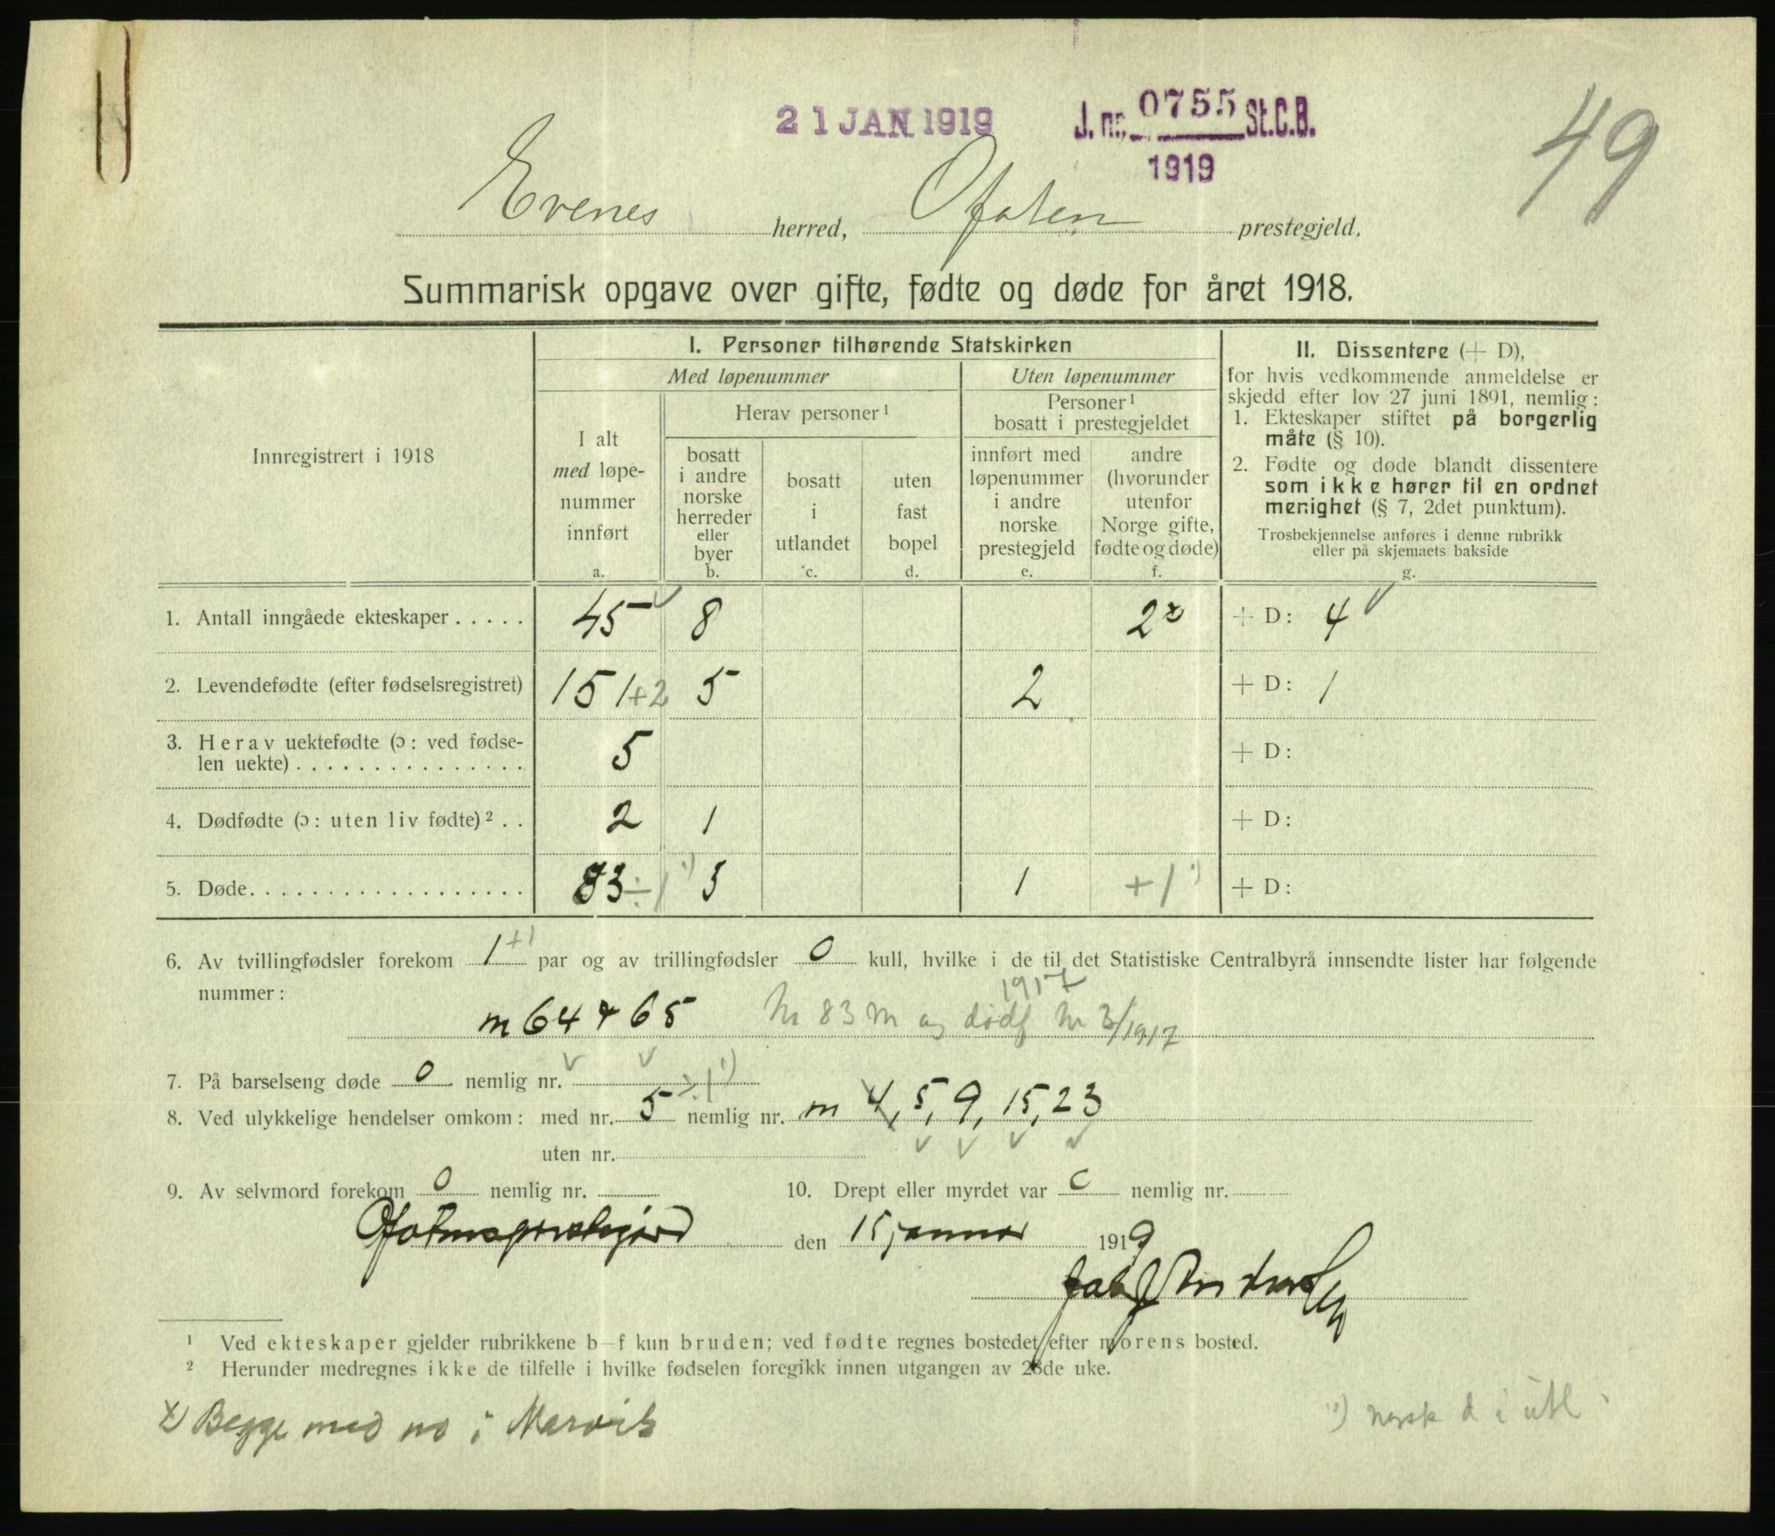 21 JAN 1919
J. nr. 0755 St.C.B.
1919
49
Evenes herred, Ofoten prestegjeld.
Summarisk opgave over gifte, fødte og døde for året 1918.
Innregistrert i 1918
I. Personer tilhørende Statskirken
Med løpenummer
Uten løpenummer
I alt
med løpe-
nummer
innført
a.
Herav personer ¹
bosatt
i andre
norske
herreder
eller
byer
b.
bosatt
i
utlandet
c.
uten
fast
bopel
d.
Personer ¹
bosatt i prestegjeldet
innført med
løpenummer
i andre
norske
prestegjeld
e.
andre
(hvorunder
utenfor
Norge gifte,
fødte og døde)
f.
II. Dissentere (+ D),
for hvis vedkommende anmeldelse er
skjedd efter lov 27 juni 1891, nemlig:
1. Ekteskaper stiftet på borgerlig
måte (§ 10).
2. Fødte og døde blandt dissentere
som ikke hører til en ordnet
menighet (§ 7, 2det punktum).
Trosbekjennelse anføres i denne rubrikk
eller på skjemaets bakside
g.
1. Antall inngåede ekteskaper . . . . . 45 ✓ 8 2 x + D: 4 ✓
2. Levendefødte (efter fødselsregistret) 151 +2 5 2 + D: 1
3. Herav uektefødte (ɔ: ved fødse-
len uekte) . . . . . . . . . . . . . . . 5 + D:
4. Dødfødte (ɔ: uten liv fødte) ² . . 2 1 + D:
5. Døde . . . . . . . . . . . . . . . . . . 83 ÷1 ¹) 5 1 +1 ¹) + D:
6. Av tvillingfødsler forekom 1 +1 par og av trillingfødsler 0 kull, hvilke i de til det Statistiske Centralbyrå innsendte lister har følgende
nummer:
1917
m 64 + 65 Nr 83 m og dødf Nr 3/1917
7. På barselseng døde 0 nemlig nr.
8. Ved ulykkelige hendelser omkom: med nr. 5 ÷1 ¹) nemlig nr. m 4, 5, 9, 15, 23
uten nr.
9. Av selvmord forekom 0 nemlig nr.
10. Drept eller myrdet var 0 nemlig nr.
Ofotens prestegård den 15 januar 1919
¹ Ved ekteskaper gjelder rubrikkene b–f kun bruden; ved fødte regnes bostedet efter morens bosted.
² Herunder medregnes ikke de tilfelle i hvilke fødselen foregikk innen utgangen av 28de uke.
x) Begge med no i Narvik
¹) norsk d i utl